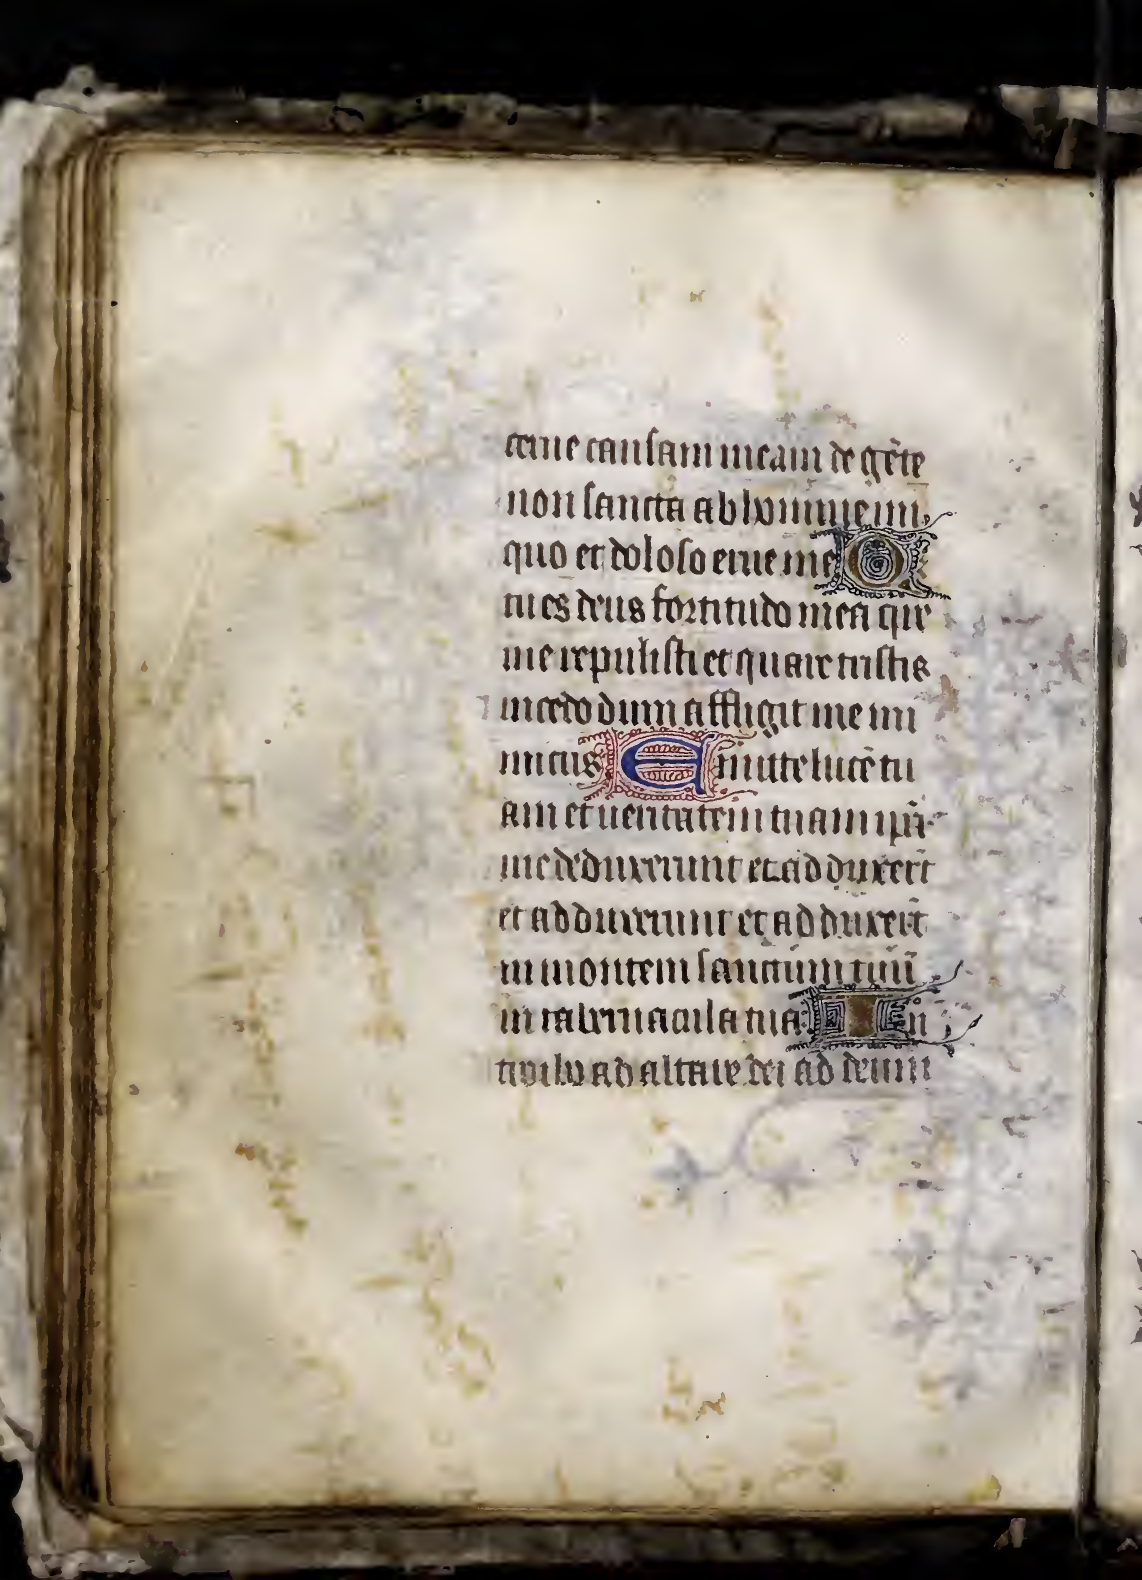 cerne causam meam de gẽte
non sancta ab homine ini
quo et doloso erue me Q
tu es deus fortitudo mea qre
me repulisti et quare tristis
incedo dum affligit me ini
micus Emitte lucẽ tu
am et ueritatem tuam ipã
me deduxerunt et adduxert
et adduxerunt et adduxerũt
in montem sanctum tuũ
in tabernacula tua Et in
troibo ad altare dei ad deum